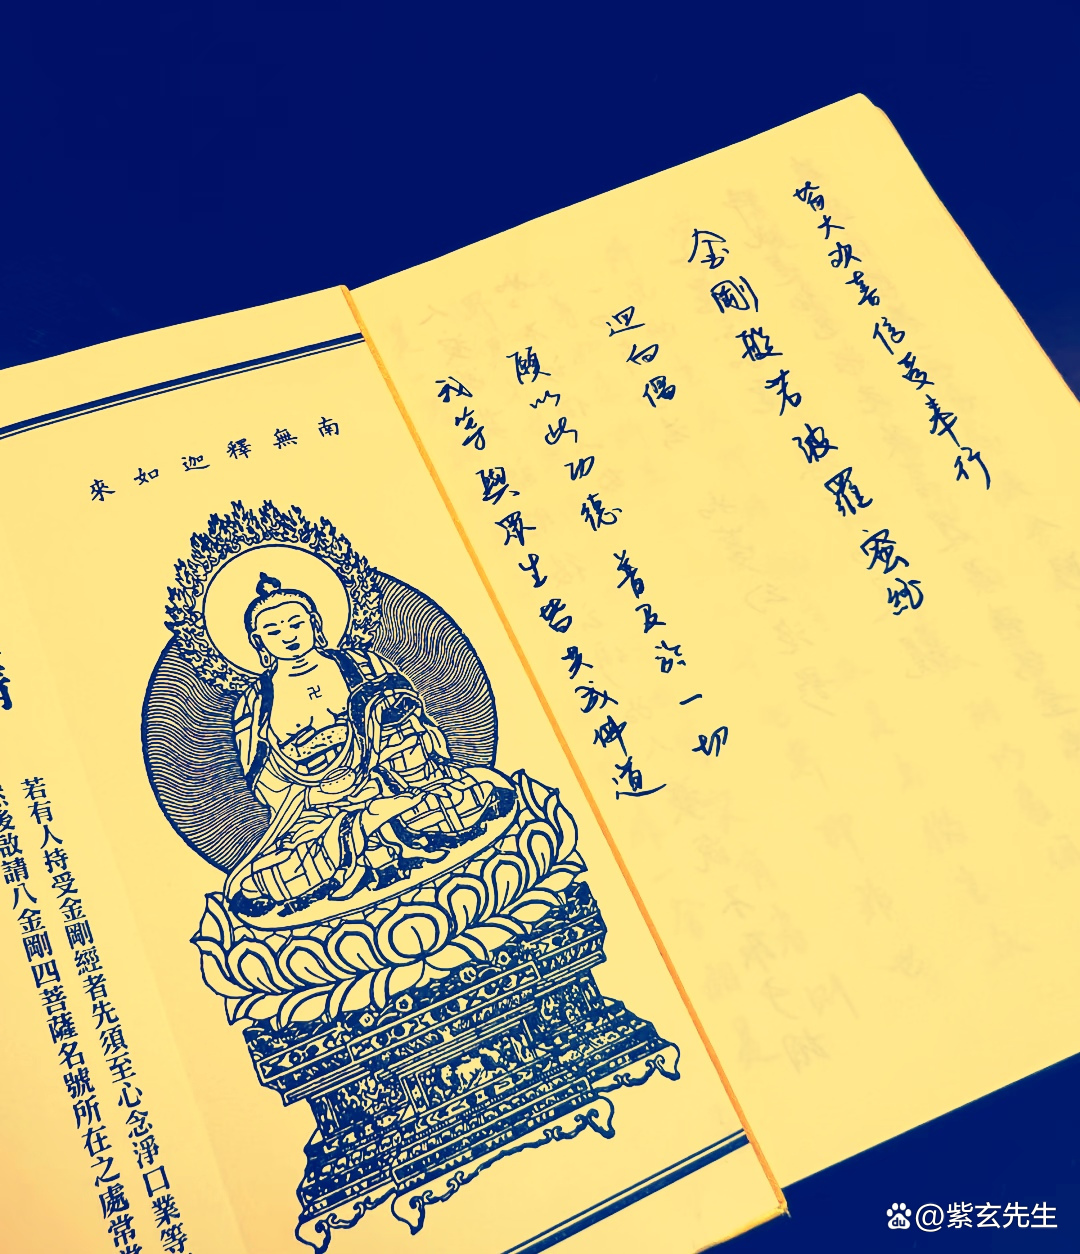 皆大欢喜信受奉行
金剛般若波羅蜜经
迴向偈
願以此功德 普及於一切
我等與眾生皆共成佛道
南無釋迦如來
卍
若有人持受金剛經者先須至心念淨口業等
後啟請八金剛四菩薩名號所在之處常
@紫玄先生